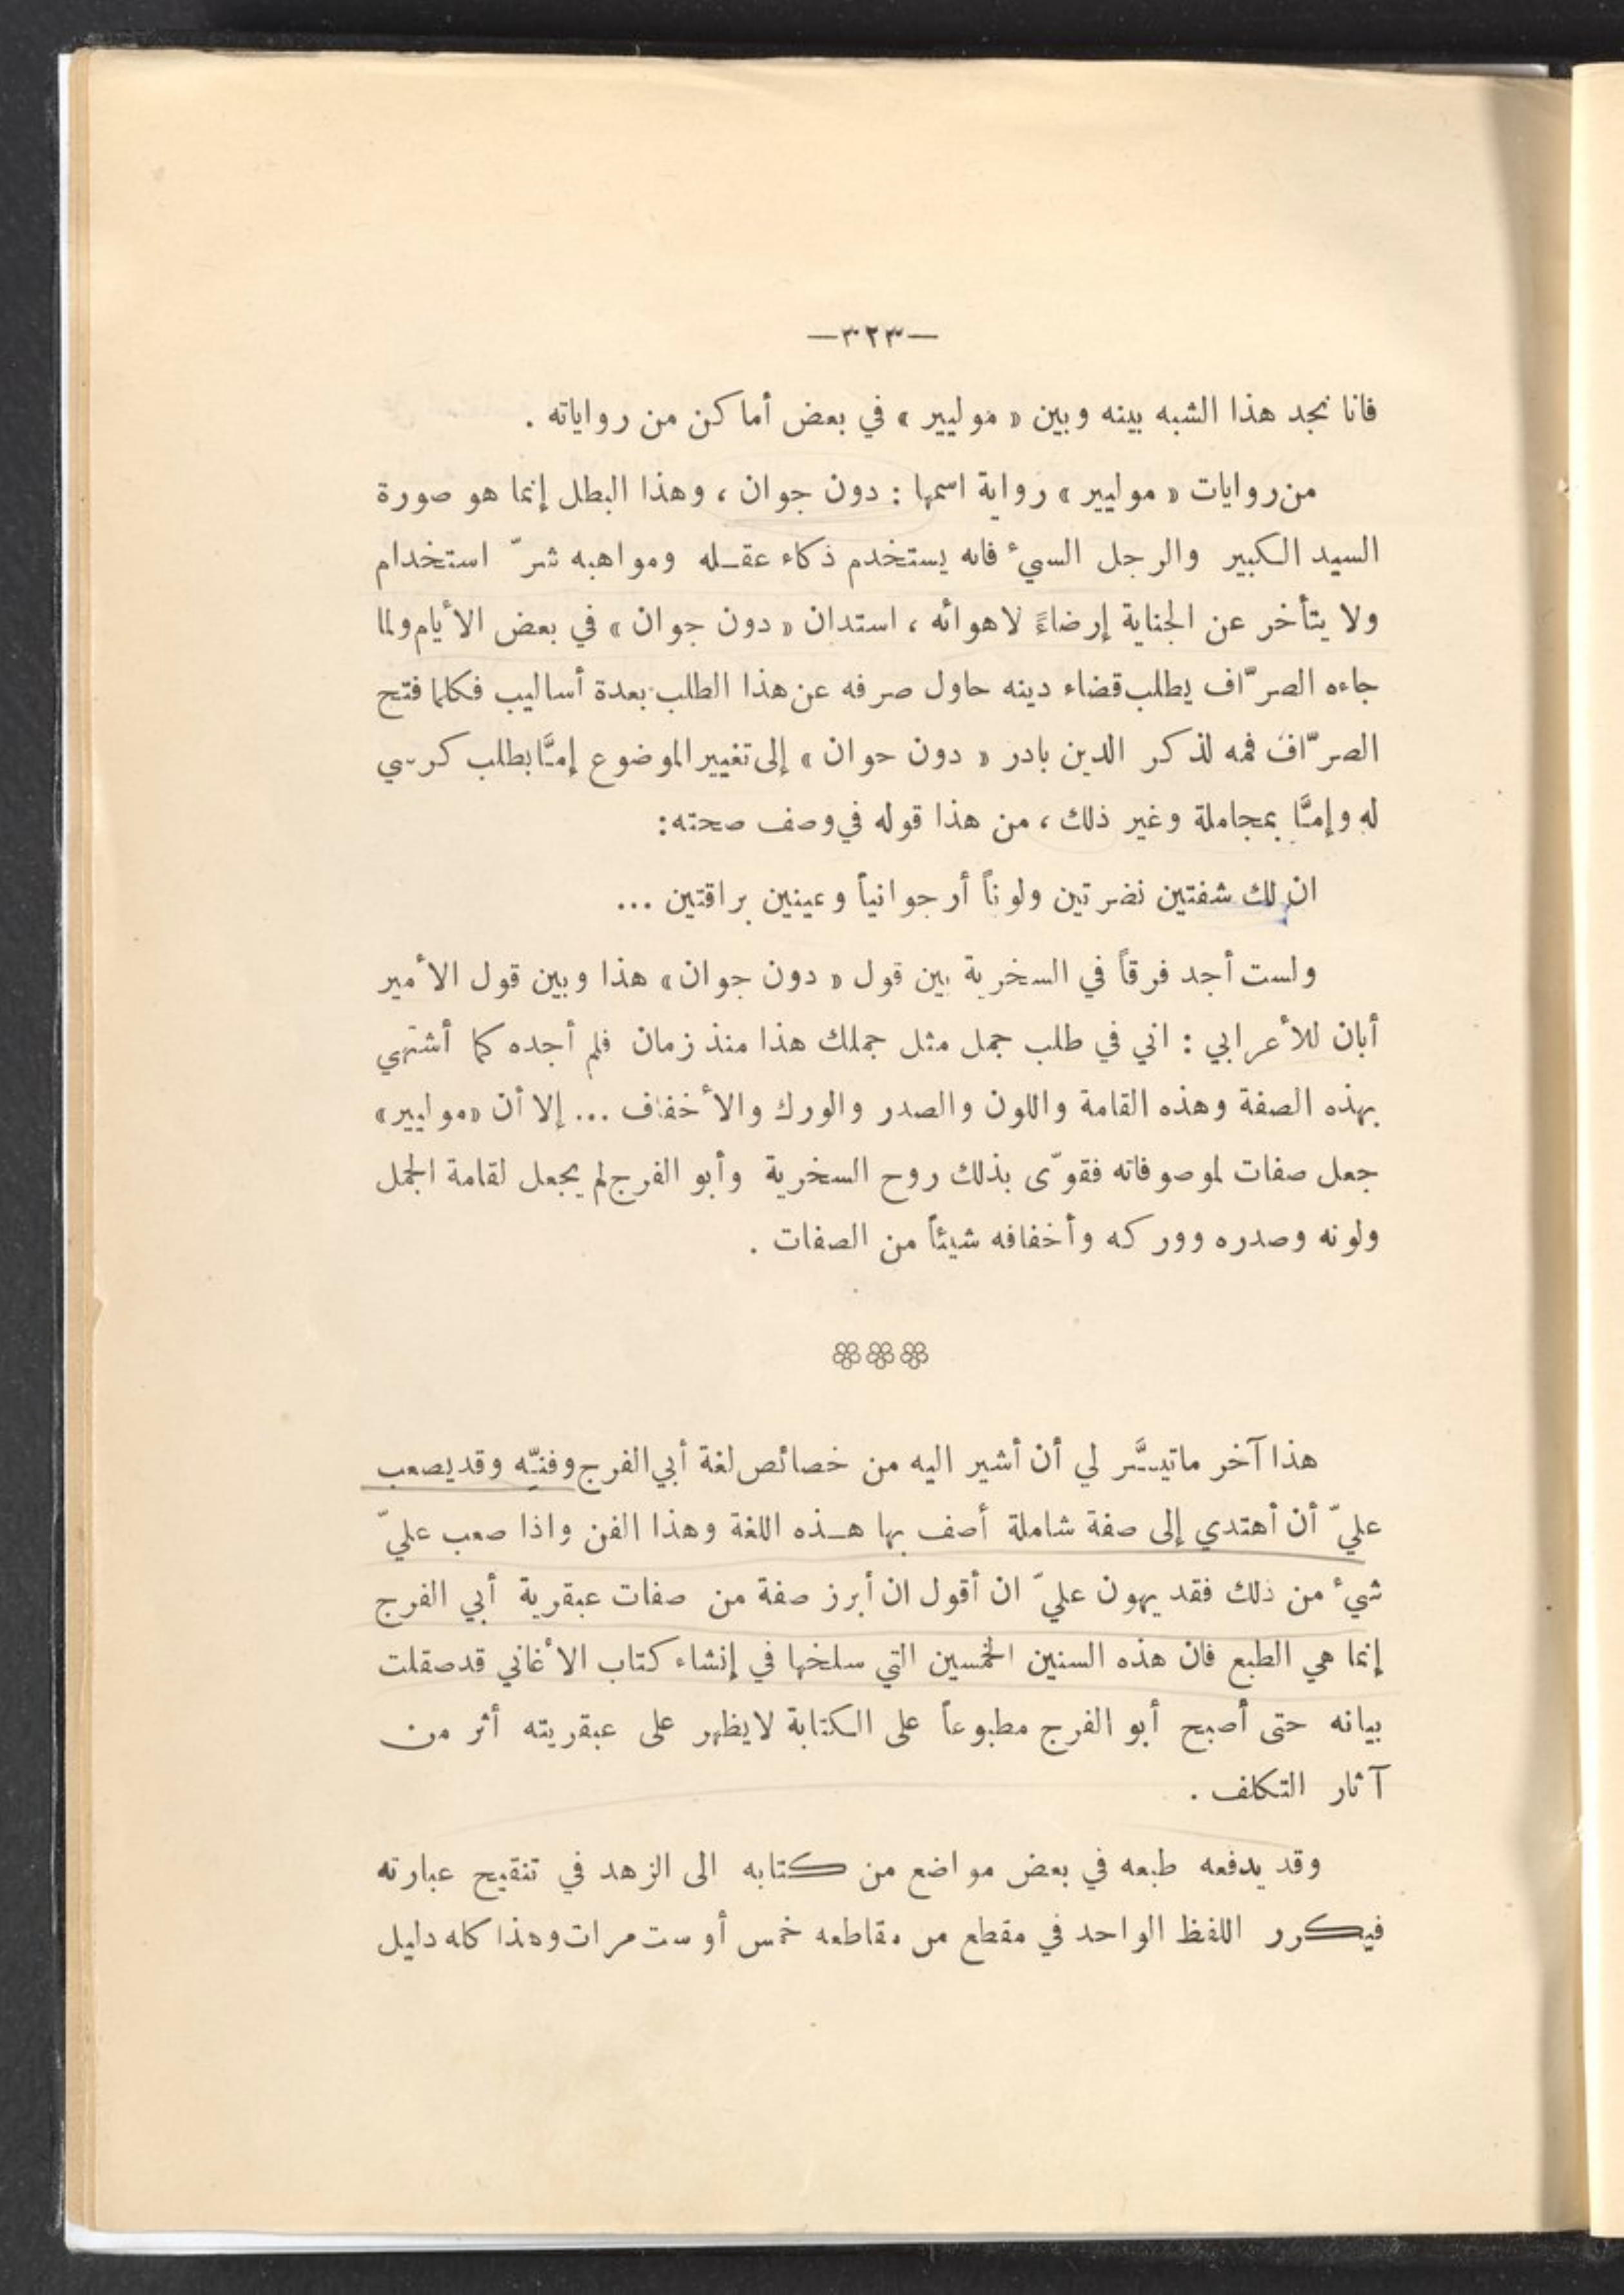 —٣٢٣—
فانا نجد هذا الشبه بينه وبين « موليير » في بعض أماكن من رواياته .
من روايات « موليير » رواية اسمها : دون جوان ، وهذا البطل إنما هو صورة
السيد الكبير والرجل السيء فانه يستخدم ذكاء عقـله ومواهبه شرّ استخدام
ولا يتأخر عن الجناية إرضاءً لاهوائه ، استدان « دون جوان » في بعض الأيام ولما
جاءه الصرّاف يطلب قضاء دينه حاول صرفه عن هذا الطلب بعدة أساليب فكلما فتح
الصرّاف فمه لذكر الدين بادر « دون حوان » إلى تغيير الموضوع إمـَّا بطلب كرسي
له وإمـَّا بمجاملة وغير ذلك ، من هذا قوله في وصف صحته :
ان لك شفتين نضرتين ولوناً أرجوانياً وعينين براقتين ...
ولست أجد فرقاً في السخرية بين قول « دون جوان » هذا وبين قول الأمير
أبان للأعرابي : اني في طلب جمل مثل جملك هذا منذ زمان فلم أجده كما أشتهي
بهذه الصفة وهذه القامة واللون والصدر والورك والأخفاف ... إلا أن «موليير»
جعل صفات لموصوفاته فقوّى بذلك روح السخرية وأبو الفرج لم يجعل لقامة الجمل
ولونه وصدره ووركه وأخفافه شيئاً من الصفات .
هذا آخر ماتيسَّر لي أن أشير اليه من خصائص لغة أبي الفرج وفنـّه وقد يصعب
عليّ أن أهتدي إلى صفة شاملة أصف بها هـذه اللغة وهذا الفن واذا صعب عليّ
شيء من ذلك فقد يهون عليّ ان أقول ان أبرز صفة من صفات عبقرية أبي الفرج
إنما هي الطبع فان هذه السنين الخمسين التي سلخها في إنشاء كتاب الأغاني قد صقلت
بيانه حتى أصبح أبو الفرج مطبوعاً على الكتابة لايظهر على عبقريته أثر من
آثار التكلف .
وقد يدفعه طبعه في بعض مواضع من كتابه الى الزهد في تنقيح عبارته
فيكرر اللفظ الواحد في مقطع من مقاطعه خمس أو ست مرات وهذا كله دليل